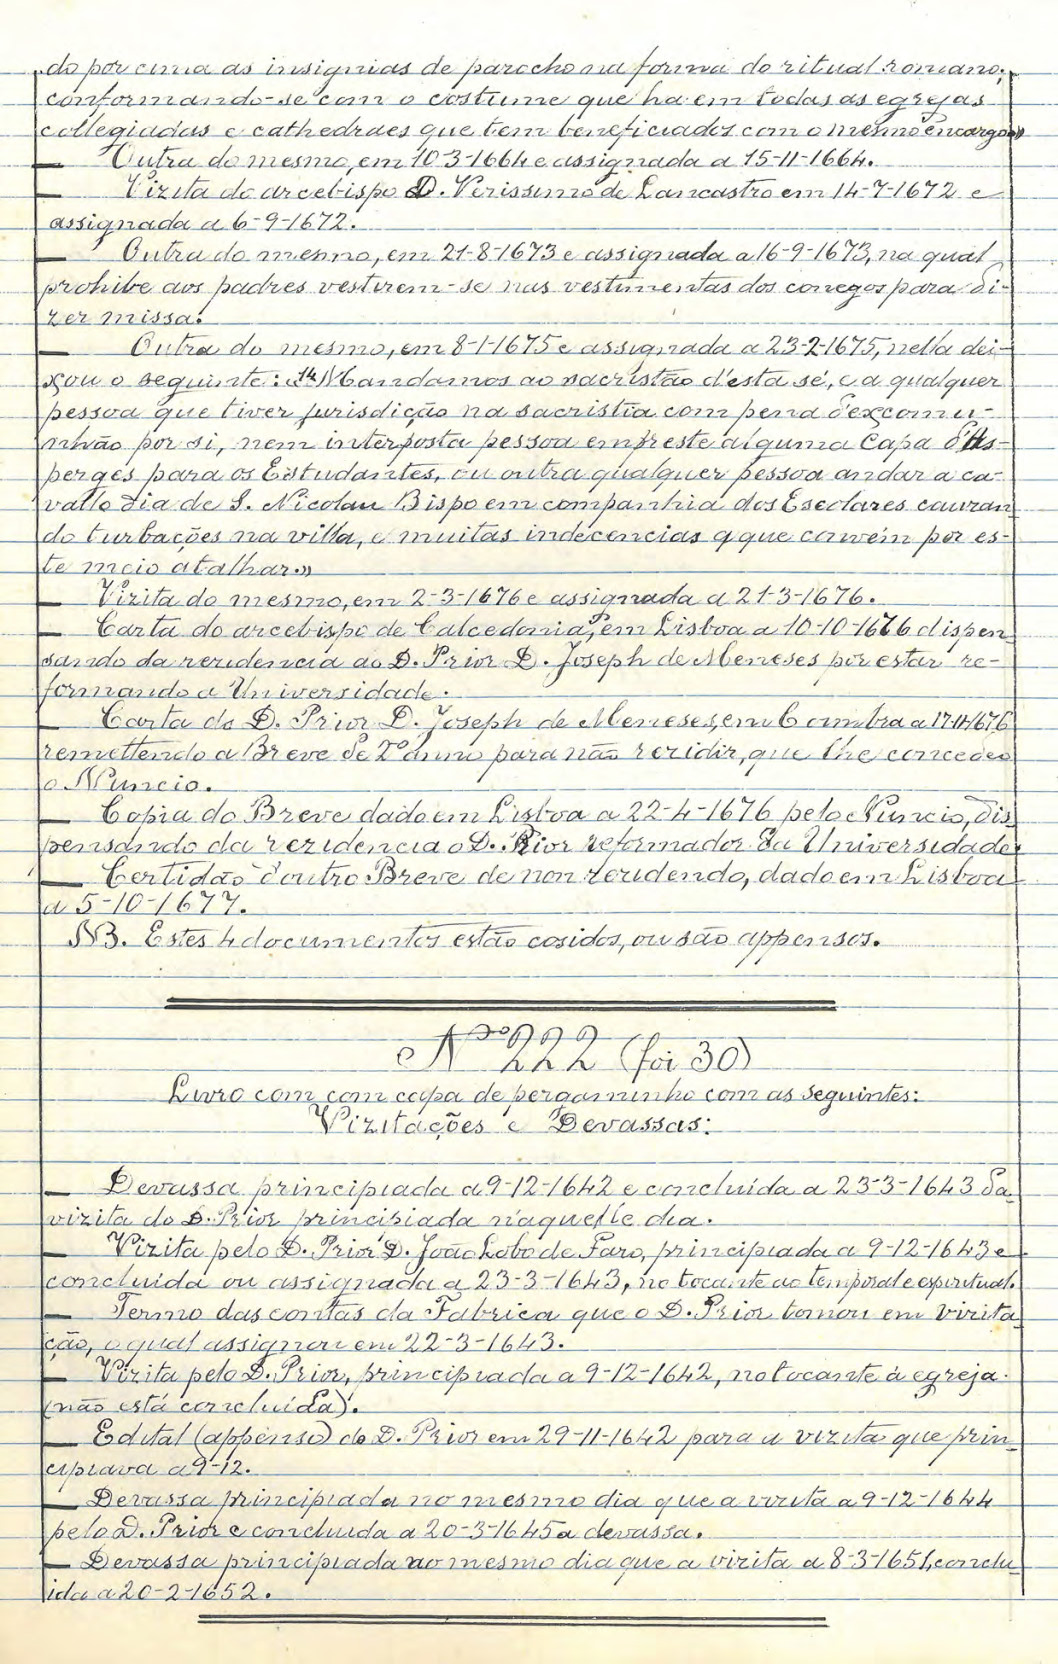 do por cima as insignias de parocho na forma do ritual romano;
conformando-se com o costume que ha em todas as egrejas
collegiadas e cathedraes que tem beneficiados com o mesmo encargo»
— Outra do mesmo, em 10-3-1664 e assignada a 15-11-1664.
— Vizita do arcebispo D. Verissimo de Lancastro em 14-7-1672 e
assignada a 6-9-1672.
— Outra do mesmo, em 21-8-1673 e assignada a 16-9-1673, na qual
prohibe aos padres vestirem-se nas vestimentas dos conegos para di-
zer missa.
— Outra do mesmo, em 8-1-1675 e assignada a 23-2-1675, nella dei-
xou o seguinte: Mandamos ao sacristão d'esta sé, e a qualquer
pessoa que tiver jurisdição na sacristia com pena d'excomu-
nhão por si, nem interposta pessoa empreste alguma Capa d'As-
perges para os Estudantes, ou outra qualquer pessoa andar a ca-
vallo dia de S. Nicolau Bispo em companhia dos Escolares cauzan
do turbações na villa, e muitas indecencias q que convém por es-
te meio atalhar.»
— Vizita do mesmo, em 2-3-1676 e assignada a 21-3-1676.
— Carta do arcebispo de Calcedonia, em Lisboa a 10-10-1676 dispen
sando da rezidencia ao D. Prior D. Joseph de Meneses por estar re-
formando a Universidade.
— Carta do D. Prior D. Joseph de Meneses, em Coimbra a
remettendo a Breve de 2º anno para não rezidir, que lhe concedeo
o Nuncio.
— Copia do Breve dado em Lisboa a 22-4-1676 pelo Nuncio, dis
pensando da rezidencia o D. Prior reformador da Universidade.
— Certidão d'outro Breve de non rezidendo, dado em Lisboa
a 5-10-1677.
NB. Estes 4 documentos estão cosidos, ou são appensos.
Nº 222 (foi 30)
Livro com com capa de pergaminho com as seguintes:
Vizitações e Devassas:
— Devassa principiada a 9-12-1642 e concluida a 23-3-1643 da
vizita do D. Prior principiada n'aquelle dia.
— Vizita pelo D. Prior D. João Lobo de Faro, principiada a 9-12-1643 e
concluida ou assignada a 23-3-1643, no tocante ao temporal e espiritual.
— Termo das contas da Fabrica que o D. Prior tomou em vizita
ção, o qual assignou em 22-3-1643.
— Vizita pelo D. Prior, principiada a 9-12-1642, no tocante á egreja.
(não está concluida).
— Edital (appenso) do D. Prior em 29-11-1642 para a vizita que prin
cipiava a 9-12.
— Devassa principiada no mesmo dia que a vizita a 9-12-1644
pelo D. Prior e concluida a 20-3-1645 a devassa.
— Devassa principiada no mesmo dia que a vizita a 8-3-1651, conclu
ida a 20-2-1652.